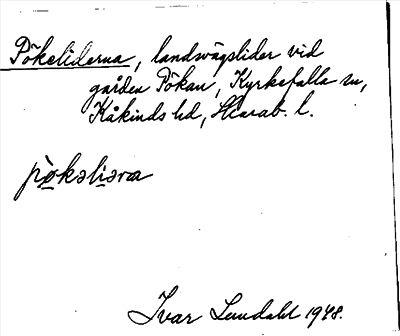 Pökeliderna, landsvägslider vid
gården Pökan, Kyrkefalla sn,
Kåkinds hd, Skarab. l.
pø̀kəliəra
Ivar Lundahl 1948.